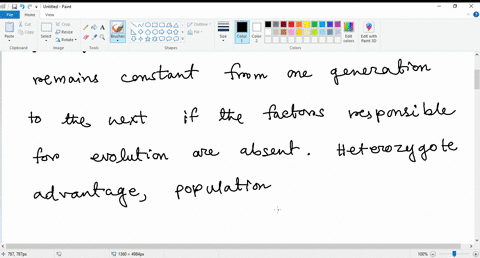 Untitled - Paint
File Home View
Paste
Select
Brushes
Shapes
Outline
Fill
Size
Color 1
Color 2
Edit colors
Edit with Paint 3D
Clipboard Image Tools Shapes Colors
remains constant from one generation
to the next if the factors responsible
for evolution are absent. Heterozygote
advantage, population
787, 787px 1380 × 4984px 100%